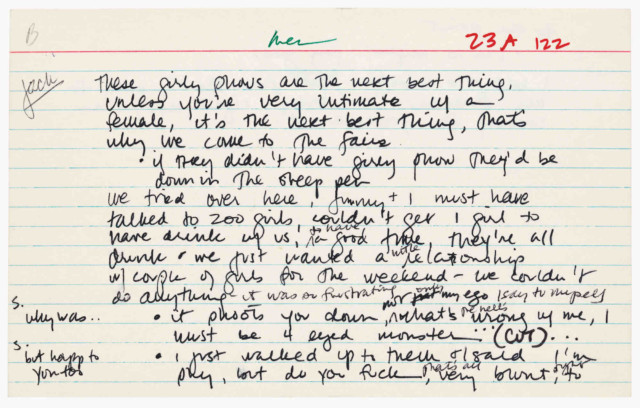 B men 23A 122
Jack These girly shows are the next best thing,
unless you're very intimate w/ a
female, it's the next best thing, that's
why we come to the fairs.
• if they didn't have girly show they'd be
down in the sheep pen
we tried over here, Jimmy + I must have
talked to 200 girls, couldn't get 1 girl to
to have
have drink w/ us, for good time, they're all
drunk • we just wanted a little relationship
w/ couple of girls for the weekend - we couldn't
do anything it was so frustrating not only my ego I say to myself
S. • it shoots you down, what's the hell's wrong w/ me, I
why was.. must be 4 eyed monster ... (CUT) ...
S. • I just walked up to them & said I'm
but happ to shy, but do you fuck, that's all very blunt, right to
you too